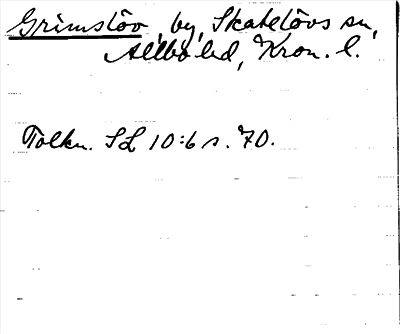 Grimslöv, by, Skatelövs sn,
Allbo hd, Kron. l.
Tolkn. SL 10:6 s. 70.